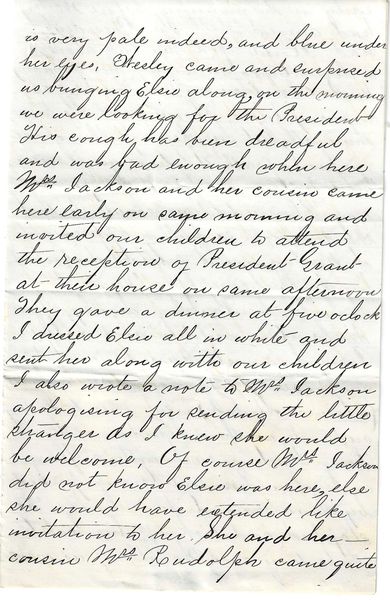 is very pale indeed, and blue under
her eyes. Wesley came and surprised
us bringing Elsie along, on the morning
we were looking for the President
His cough has been dreadful
and was bad enough when here
Mrs. Jackson and her cousin came
here early on same morning and
invited our children to attend
the reception of President Grant
at their house on same afternoon
They gave a dinner at five oclock
I dressed Elsie all in white and
sent her along with our children
I also wrote a note to Mrs. Jackson
apologising for sending the little
stranger as I knew she would
be welcome. Of course Mrs. Jackson
did not know Elsie was here, else
she would have extended like
invitation to her. She and her—
cousin Mrs. Rudolph came quite